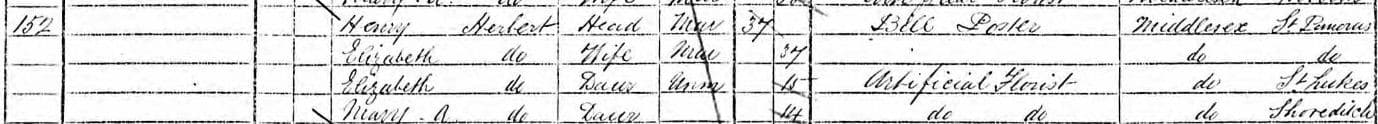 152 Henry Herbert Head Mar 37 Bill Poster Middlesex St Pancras
Elizabeth do Wife Mar 37 do do
Elizabeth do Daur Unm 15 Artificial Florist do St Lukes
Mary A do Daur 14 do do do Shoreditch